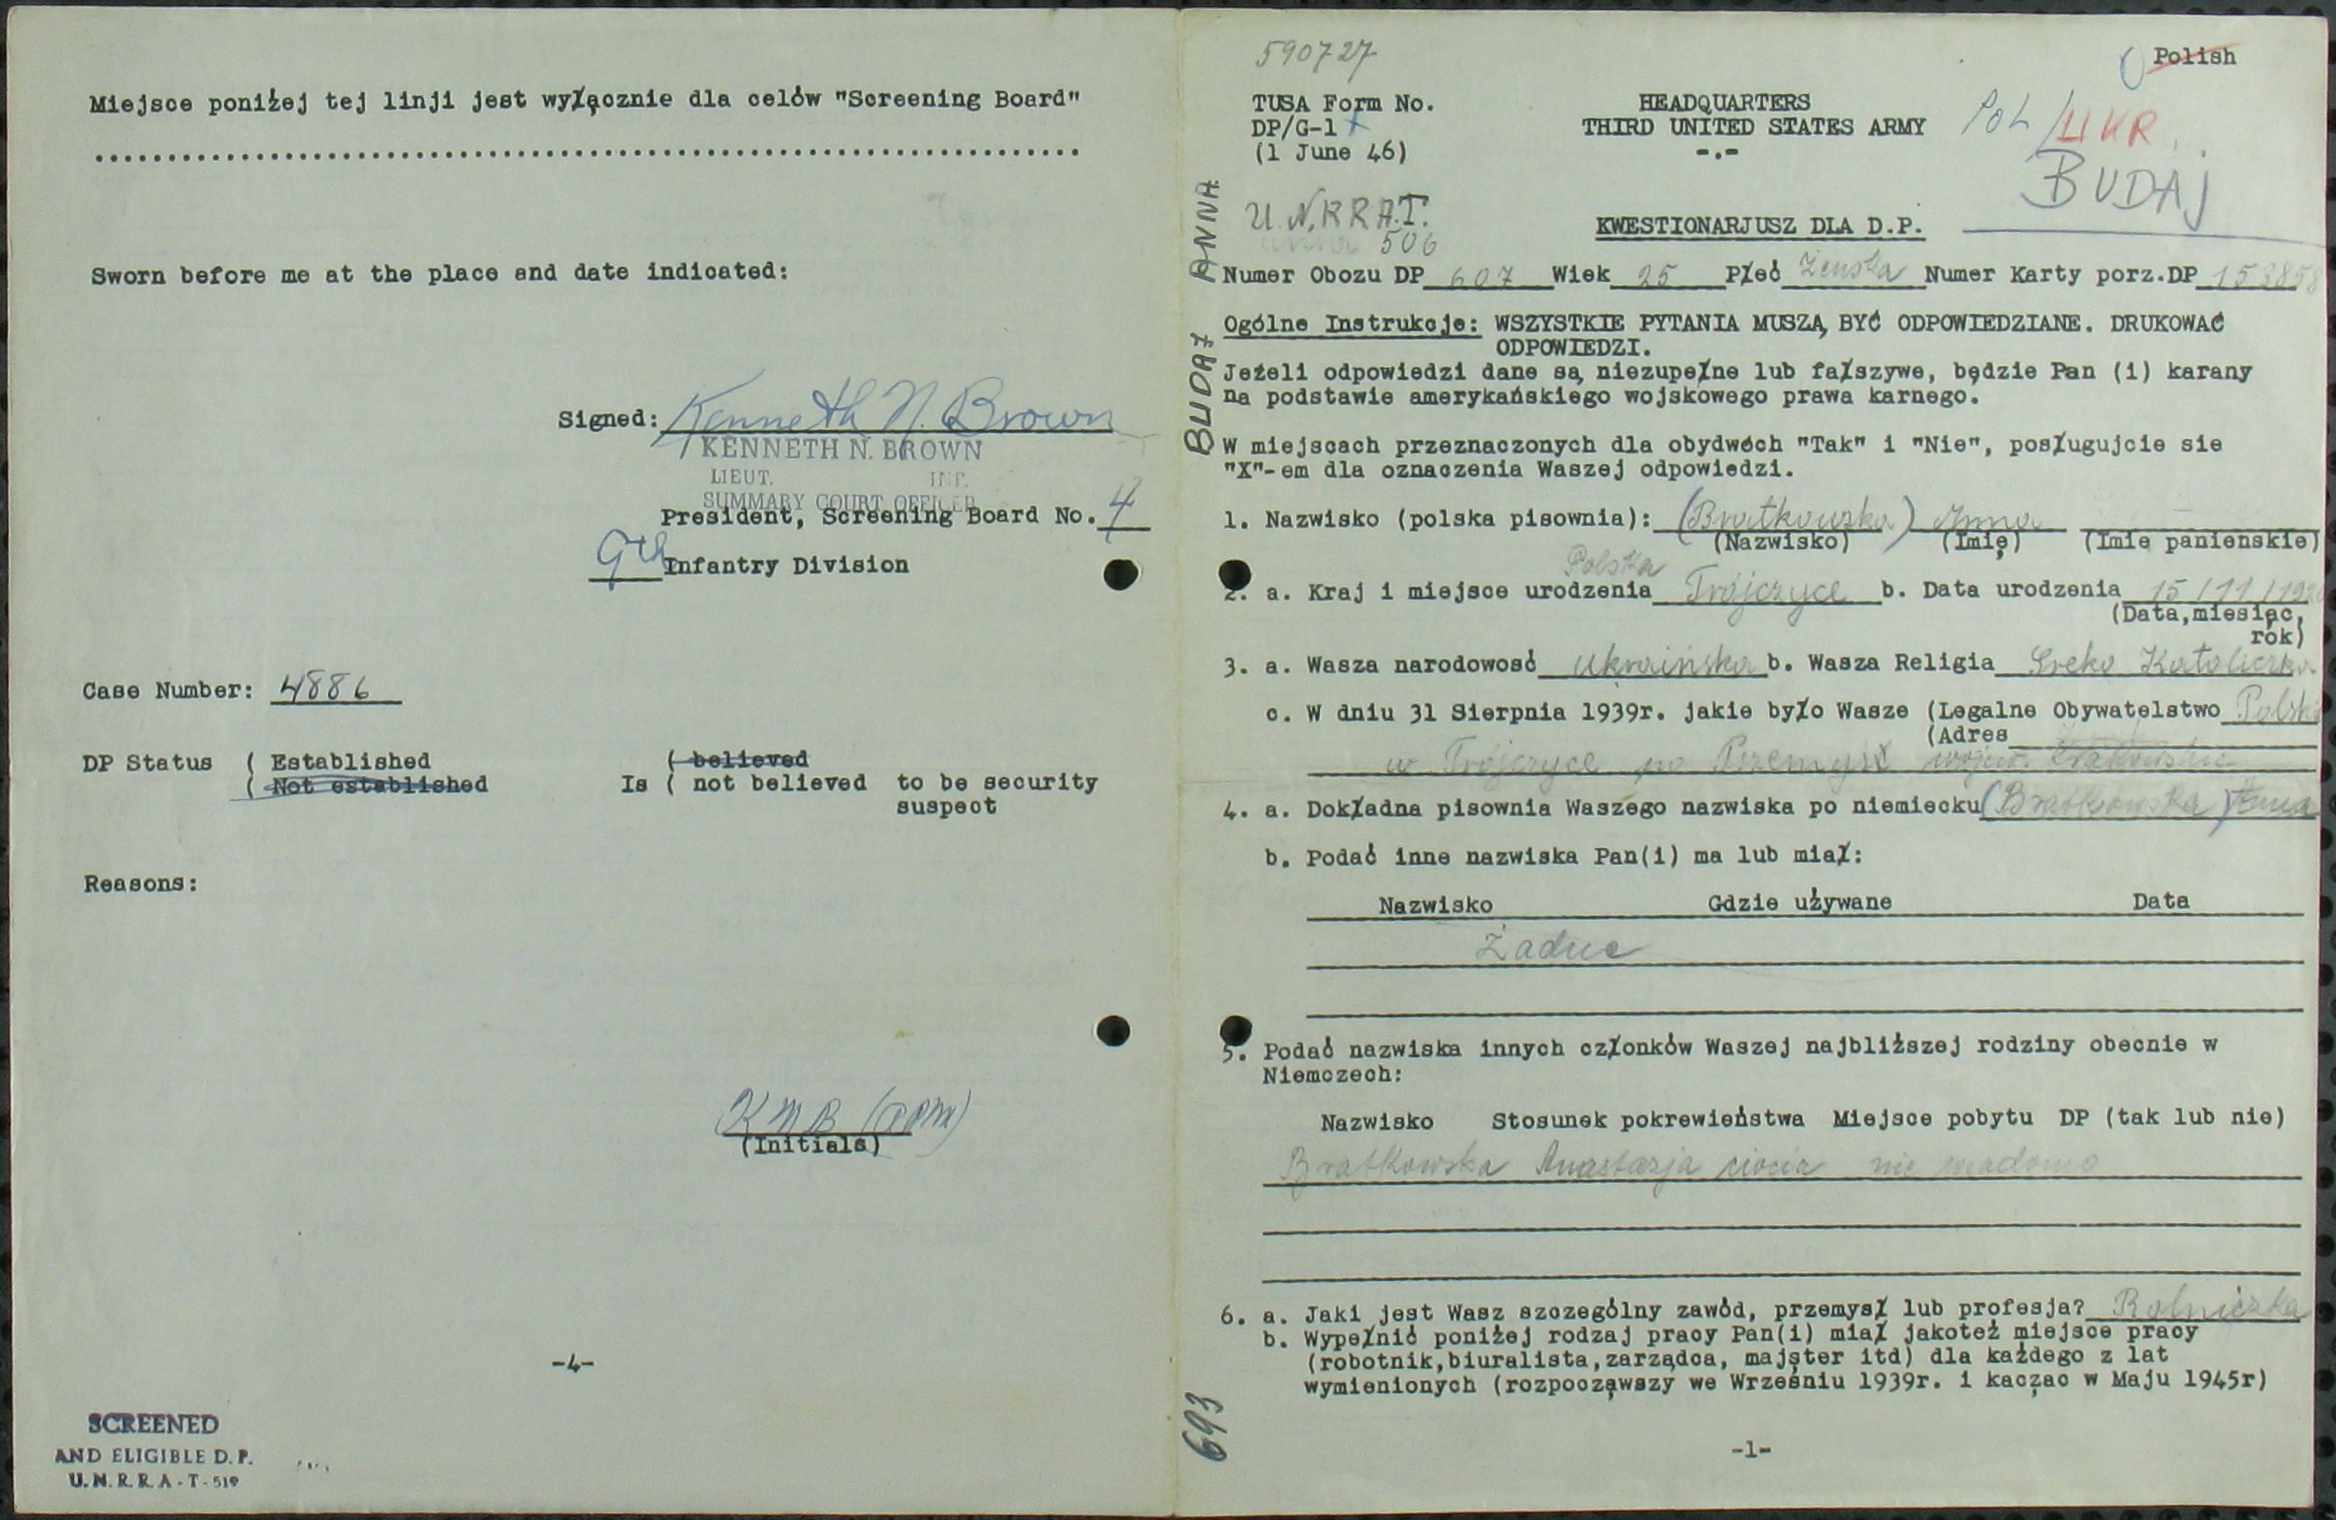 Miejsce poniżej tej linji jest wyłącznie dla celów "Screening Board"
Sworn before me at the place and date indicated:
Signed: Kenneth N. Brown
KENNETH N. BROWN
LIEUT. INF.
SUMMARY COURT OFFICER
President, Screening Board No. 4
9th Infantry Division
Case Number: 4886
DP Status ( Established ( believed
( Not established Is ( not believed to be security
suspect
Reasons:
(Initials)
-4-
SCREENED
AND ELIGIBLE D.P.
U.N.R.R.A-T-519
590727
Polish
TUSA Form No. HEADQUARTERS
DP/G-1 THIRD UNITED STATES ARMY
(1 June 46) -.-
POL/UKR.
BUDAJ
U.N.R.R.A.T.
506
KWESTIONARJUSZ DLA D.P.
BUDAJ ANNA
Numer Obozu DP 607 Wiek 25 Płeć Żeńska Numer Karty porz.DP 153858
Ogólne Instrukcje: WSZYSTKIE PYTANIA MUSZĄ BYĆ ODPOWIEDZIANE. DRUKOWAĆ
ODPOWIEDZI.
Jeżeli odpowiedzi dane są niezupełne lub fałszywe, będzie Pan (i) karany
na podstawie amerykańskiego wojskowego prawa karnego.
W miejscach przeznaczonych dla obydwóch "Tak" i "Nie", posługujcie sie
"X"-em dla oznaczenia Waszej odpowiedzi.
1. Nazwisko (polska pisownia): (Bratkowska) Anna
(Nazwisko) (Imię) (Imie panieńskie)
Polska
2. a. Kraj i miejsce urodzenia Trójczyce b. Data urodzenia 15/11/
(Data,miesiąc,
rok)
3. a. Wasza narodowosć Ukraińska b. Wasza Religia Greko Katoliczka
c. W dniu 31 Sierpnia 1939r. jakie było Wasze (Legalne Obywatelstwo Polskie
(Adres
w Trójczyce po Przemyśl wojew. Krakowskie
4. a. Dokładna pisownia Waszego nazwiska po niemiecku (Bratkowska) Anna
b. Podać inne nazwiska Pan(i) ma lub miał:
Nazwisko Gdzie używane Data
Żadne
5. Podać nazwiska innych członków Waszej najbliższej rodziny obecnie w
Niemczech:
Nazwisko Stosunek pokrewieństwa Miejsce pobytu DP (tak lub nie)
Bratkowska Anastazja ciocia nie wiadomo
6. a. Jaki jest Wasz szczególny zawód, przemysł lub profesja? Rolniczka
b. Wypełnić poniżej rodzaj pracy Pan(i) miał jakoteż miejsce pracy
(robotnik,biuralista,zarządca, majster itd) dla każdego z lat
wymienionych (rozpocząwszy we Wrześniu 1939r. i kacząc w Maju 1945r)
693
-1-